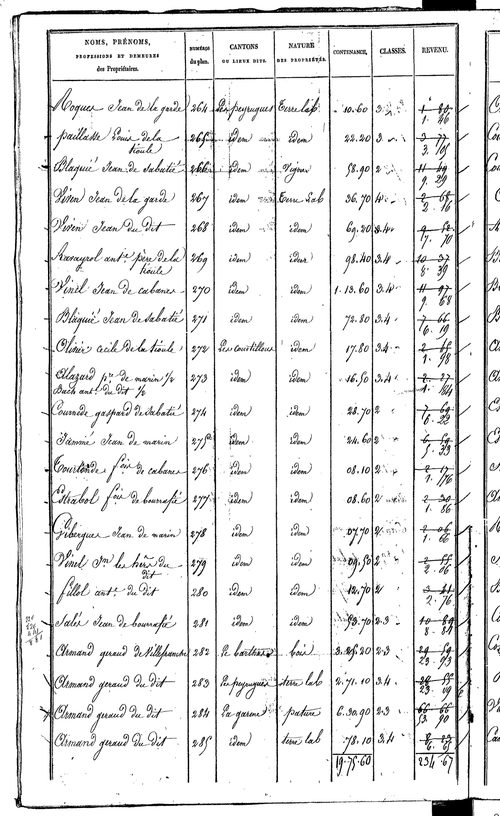 NOMS, PRÉNOMS, PROFESSIONS ET DEMEURES des Propriétaires. NUMÉROS du plan. CANTONS OU LIEUX DITS. NATURE DES PROPRIÉTÉS. CONTENANCE. CLASSES. REVENU.
Roques Jean de la garde 264 Les peyrugues terre lab 10.60 3 1 80 1. 46
paillasse Louis de la tioule 265 idem idem 22.20 3 3 77 3. 05
Blaquié Jean de Sabatié 266 idem Vignes 58.90 2 11 49 9. 29
Viven Jean de la garde 267 idem terre Lab 36.70 4 2 65 2. 16
Viven Jean du dit 268 idem idem 69.20 3.4 9 52 7. 70
269 idem idem 98.40 3.4 10 37 8. 39
Vinel Jean de cabanes 270 idem idem 1.13.60 3.4 11 97 9. 68
Blaquié Jean de Sabatié 271 idem idem 72.80 3.4 7 66 6. 19
Olivier cecile de la tioule 272 Les coustillous idem 17.80 3.4 2 45 1. 98
Alazard pre de marin 1/2 273 idem idem 16.50 3.4 2 27 1. 84
Bach ant. du dit 1/2
Counede gaspard de Sabatié 274 idem idem 28.70 2 7 69 6. 22
Jaminé Jean de marin 275 idem idem 24.60 2 6 59 5. 33
de cabanes 276 idem idem 08.10 2 2 17 1. 76
Estrabol de bourrafié 277 idem idem 08.60 2 2 30 1. 86
Gibergues Jean de marin 278 idem idem 07.70 2 2 06 1. 66
Vinel Jn les hérs du dit 279 idem idem 09.50 2 2 55 2. 06
fillol ant. du dit 280 idem idem 12.70 2 3 41 2. 76
Salés Jean de bourrafié 281 idem idem 53.70 2.3 10 89 8. 84
Armand geraud de Villefranche 282 Le barthas bois 3.25.20 2.3 29 59 23. 93
Armand geraud du dit 283 Les peyrugues terre lab 2.71.10 3.4 28 55 23. 09
Armand geraud du dit 284 La garene pature 6.30.90 2.3 66 66 53. 90
Armand geraud du dit 285 idem terre lab 78.10 3.4 8 23 6. 65
19.75.60 234.67